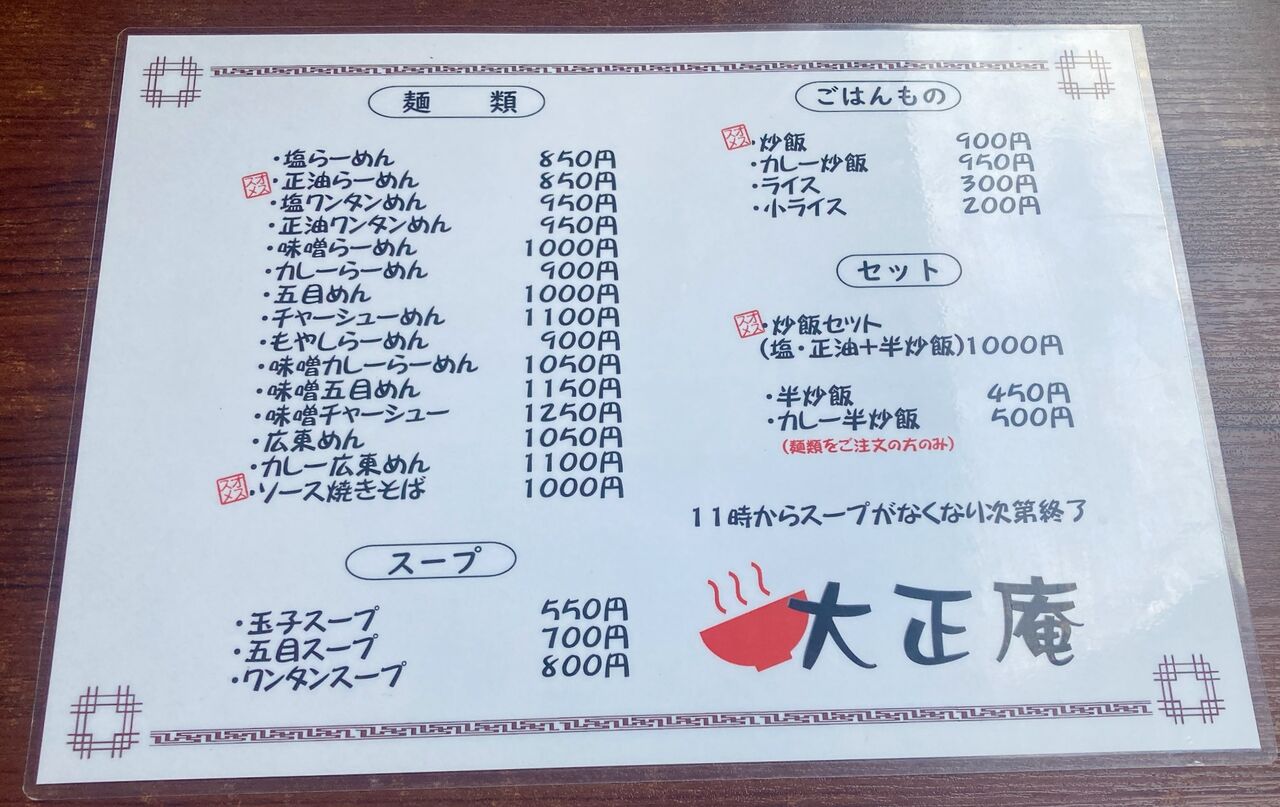 麺　類
・塩らーめん 850円
オススメ ・正油らーめん 850円
・塩ワンタンめん 950円
・正油ワンタンめん 950円
・味噌らーめん 1000円
・カレーらーめん 900円
・五目めん 1000円
・チャーシューめん 1100円
・もやしらーめん 900円
・味噌カレーらーめん 1050円
・味噌五目めん 1150円
・味噌チャーシュー 1250円
・広東めん 1050円
・カレー広東めん 1100円
オススメ ・ソース焼きそば 1000円
スープ
・玉子スープ 550円
・五目スープ 700円
・ワンタンスープ 800円
ごはんもの
オススメ ・炒飯 900円
・カレー炒飯 950円
・ライス 300円
・小ライス 200円
セット
オススメ ・炒飯セット
(塩・正油+半炒飯)1000円
・半炒飯 450円
・カレー半炒飯 500円
(麺類をご注文の方のみ)
11時からスープがなくなり次第終了
大正庵